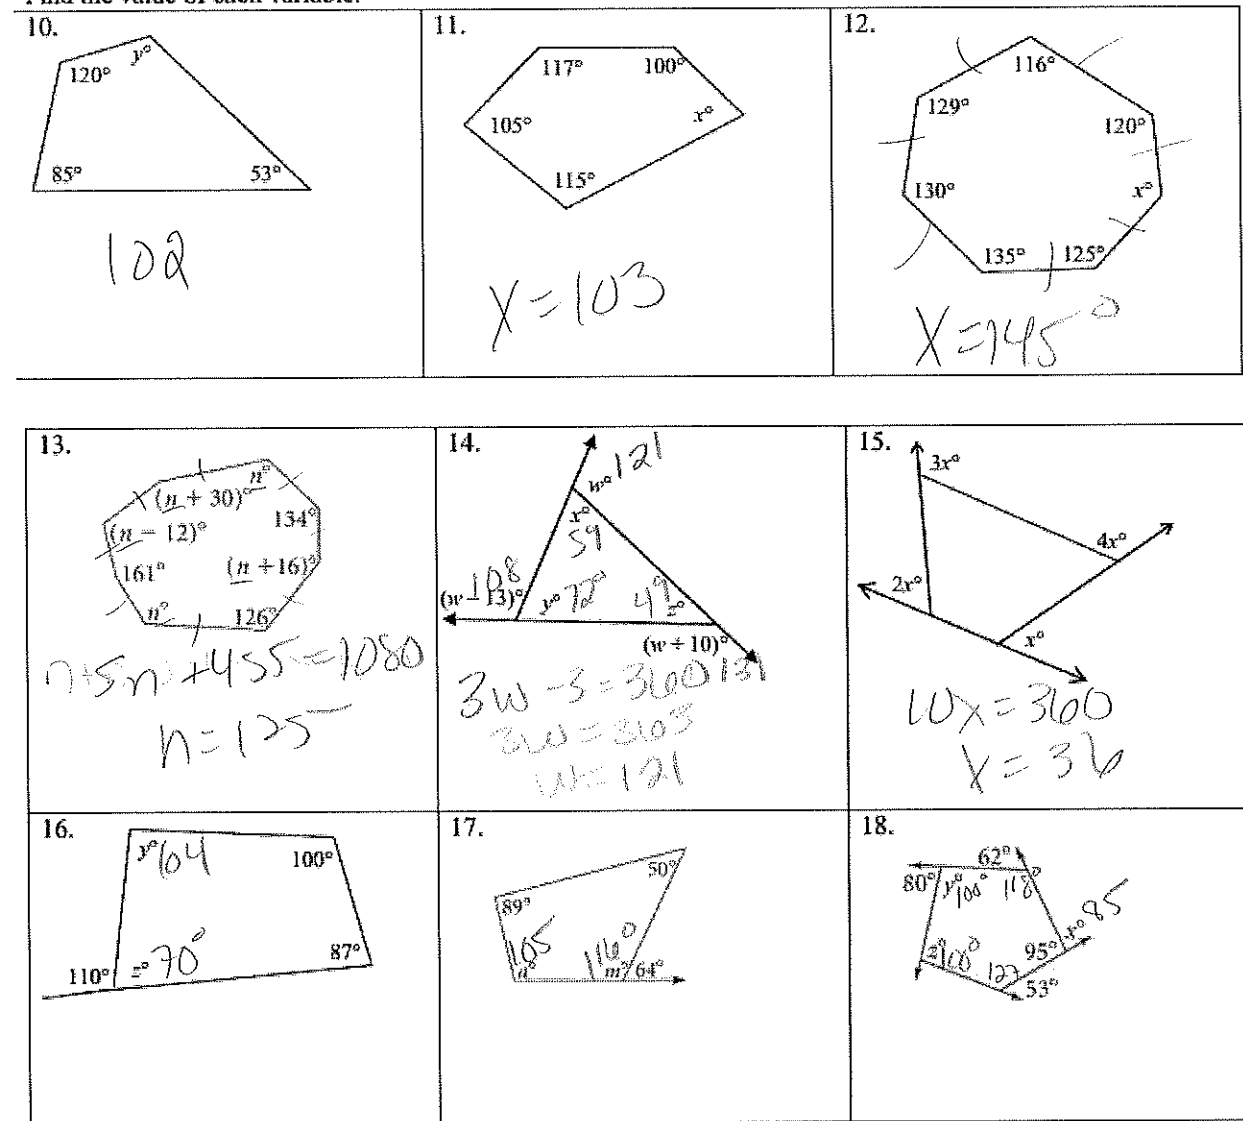 10.
y°
120°
85°
53°
102
11.
117°
100°
105°
x°
115°
X=103
12.
116°
129°
120°
130°
x°
135°
125°
X=145°
13.
n°
(n + 30)°
(n − 12)°
134°
161°
(n +16)°
n°
126°
+455=1080
n=125
14.
w° 121
x°
59
108
(w − 13)°
y° 72°
49 z°
(w + 10)°
131
3w -3=360
3w=363
w=121
15.
3x°
4x°
2x°
x°
10x=360
x=36
16.
y° 104
100°
110°
z° 70°
87°
17.
50°
89°
105
116°
n°
m°
64°
18.
62°
80°
y° 100°
118°
x° 85
z° 100°
95°
127
53°